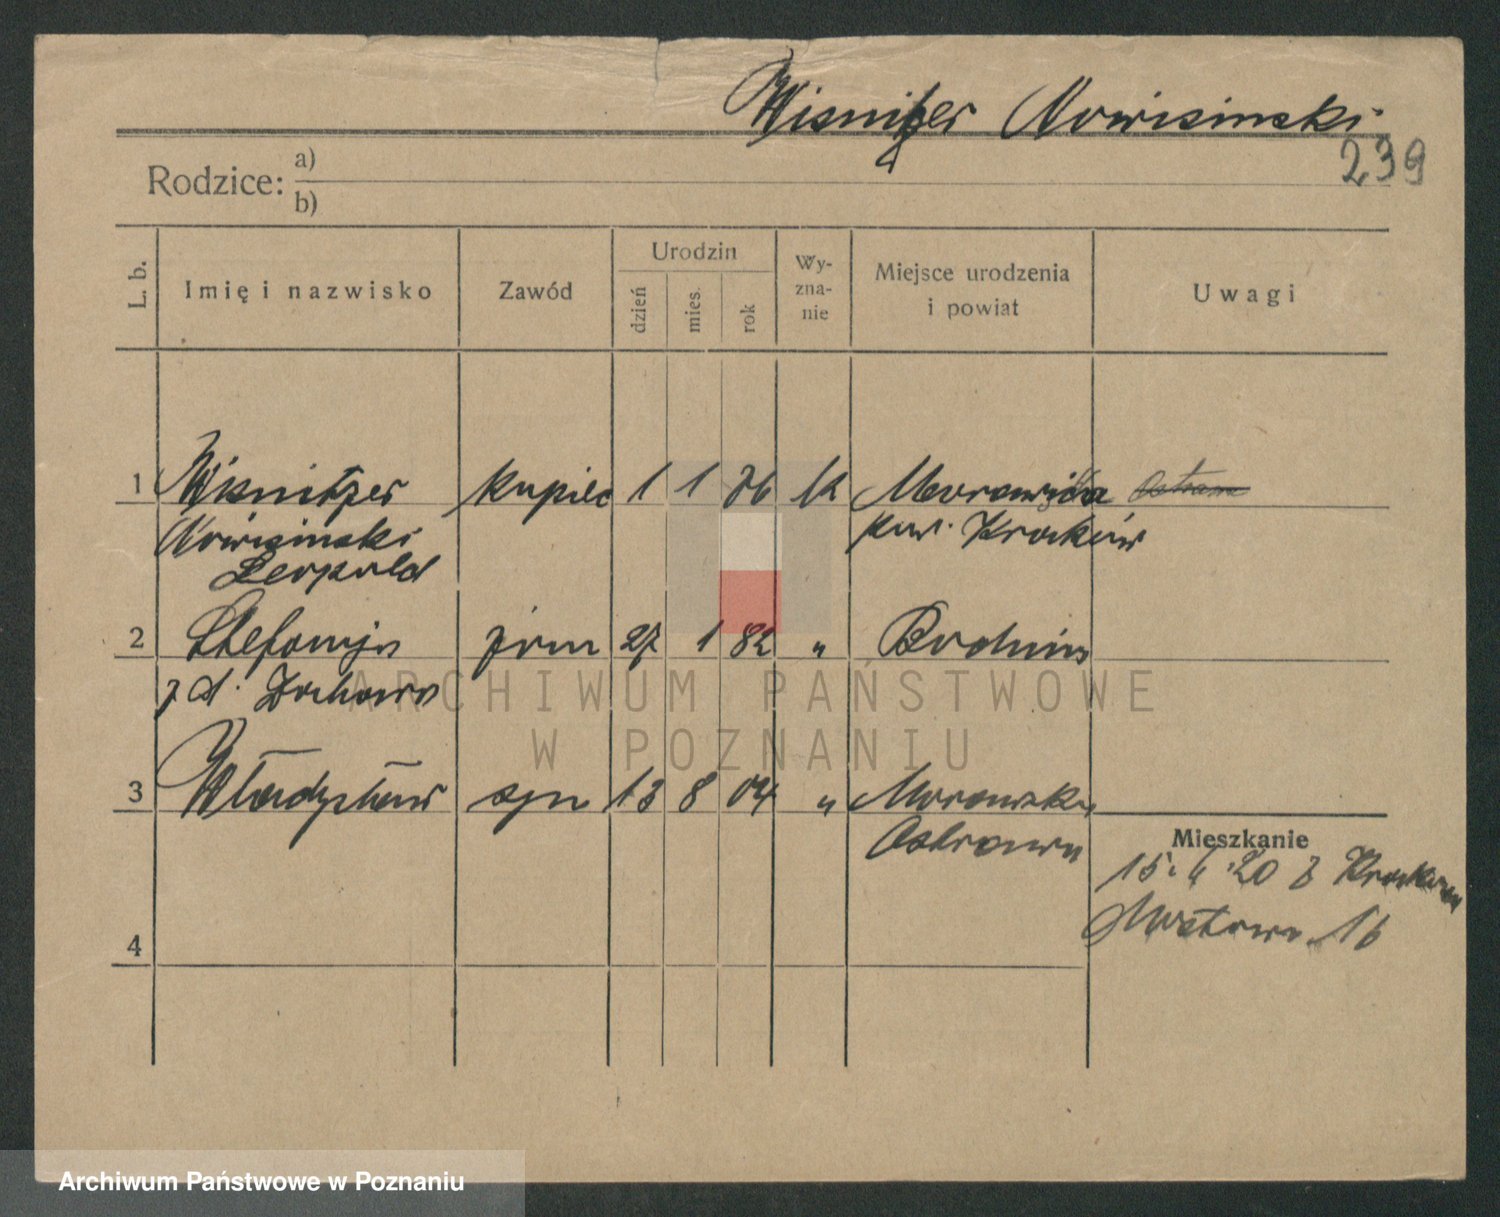 Wisnitzer Nowisinski
239
Rodzice: a)
b)
L. b. Imię i nazwisko Zawód Urodzin dzień mies. rok Wy-zna-nie Miejsce urodzenia i powiat Uwagi
1 Wisnitzer kupiec 1 1 76 k Morawica
Nowisinski pow. Kraków
Leopold
2 Stefanja żona 27 1 82 "
z d. Zuchowa
3 Władysław syn 13 8 04 " Morawska
Ostrawa
Mieszkanie
15. 4. 20 z Krakowa
Mostowa 16
4
ARCHIWUM PAŃSTWOWE
W POZNANIU
Archiwum Państwowe w Poznaniu